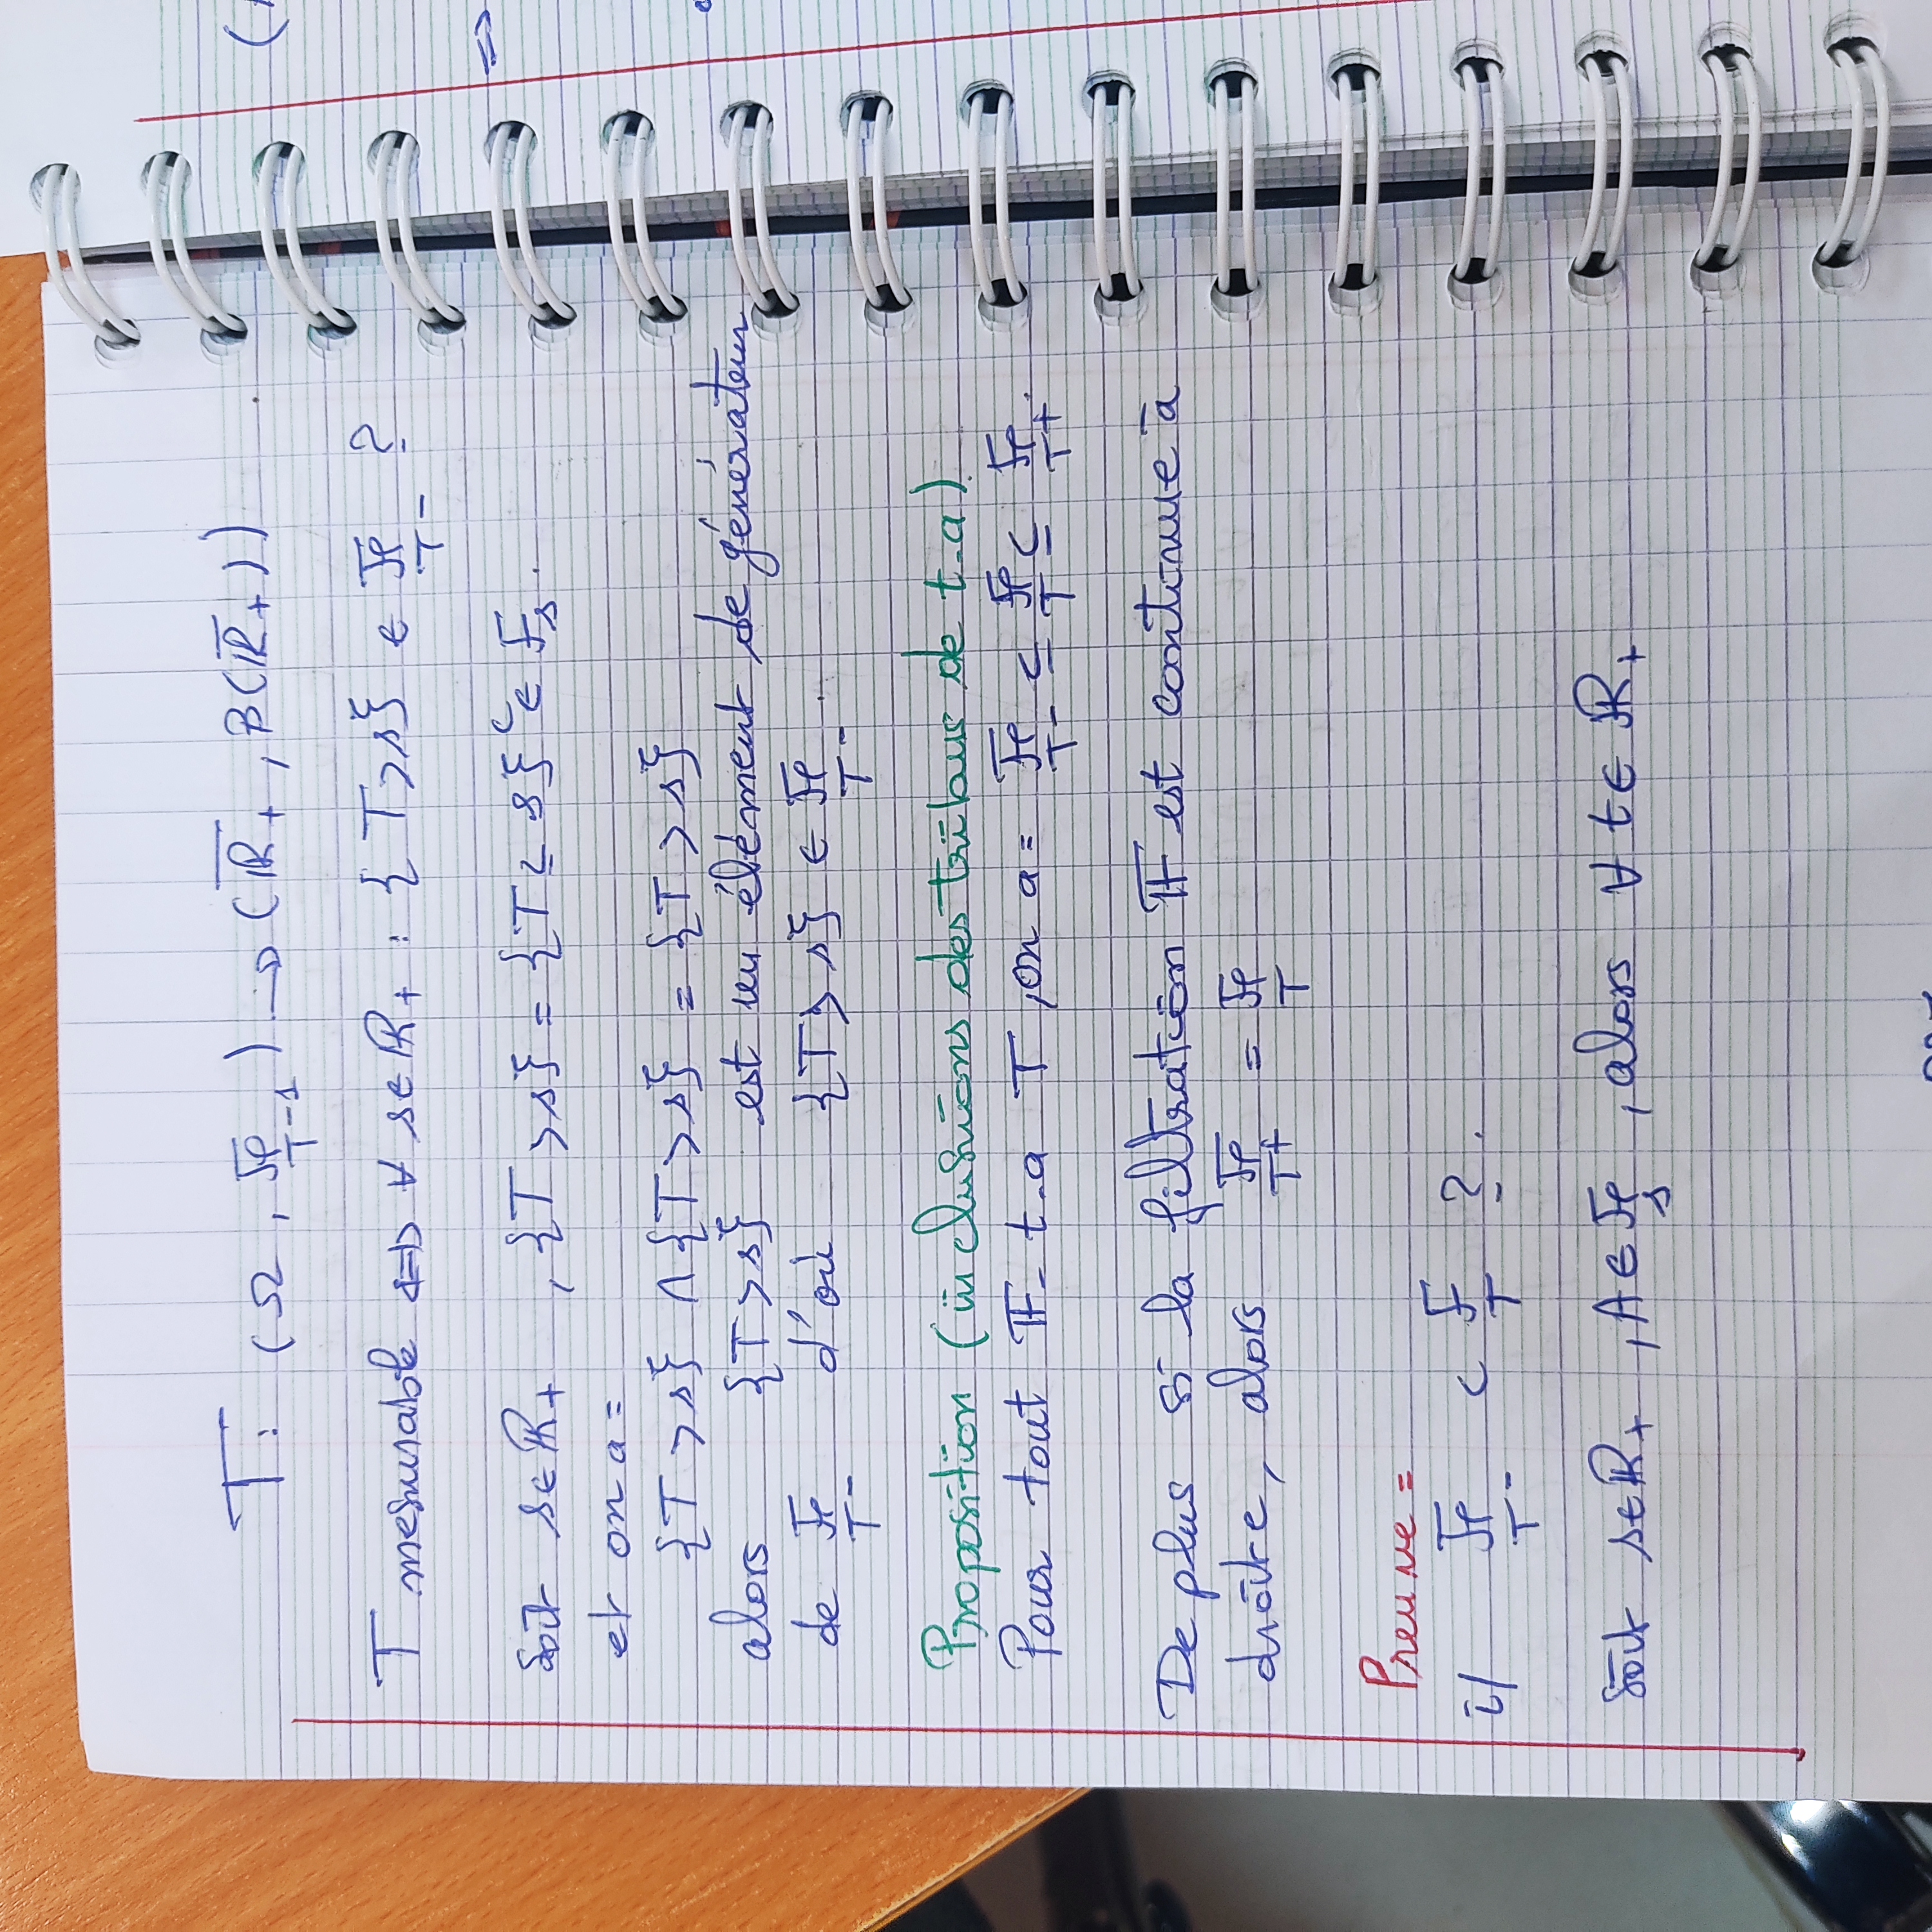 T : (Ω, ℱ_{T-1}) → (ℝ̅₊, B(ℝ̅₊))
T mesurable ⇔ ∀ s∈ℝ₊ : {T>s} ∈ ℱ_{T-} ?
Soit s∈ℝ₊ , {T>s} = {T≤s}ᶜ ∈ F_s.
et on a =
{T>s} ∩ {T>s} = {T>s}
alors {T>s} est un élément de générateur
de ℱ_{T-} d'où {T>s} ∈ ℱ_{T-}.
Proposition (inclusions des tribus de t-a)
Pour tout 𝔽-t-a T, on a = ℱ_{T-} ⊆ ℱ_T ⊆ ℱ_{T+}.
De plus si la filtration 𝔽 est continue à
droite, alors ℱ_{T+} = ℱ_T
Preuve =
i/ ℱ_{T-} ⊂ F_T ?.
Soit s∈ℝ₊ , A∈ℱ_s , alors ∀ t∈ℝ₊